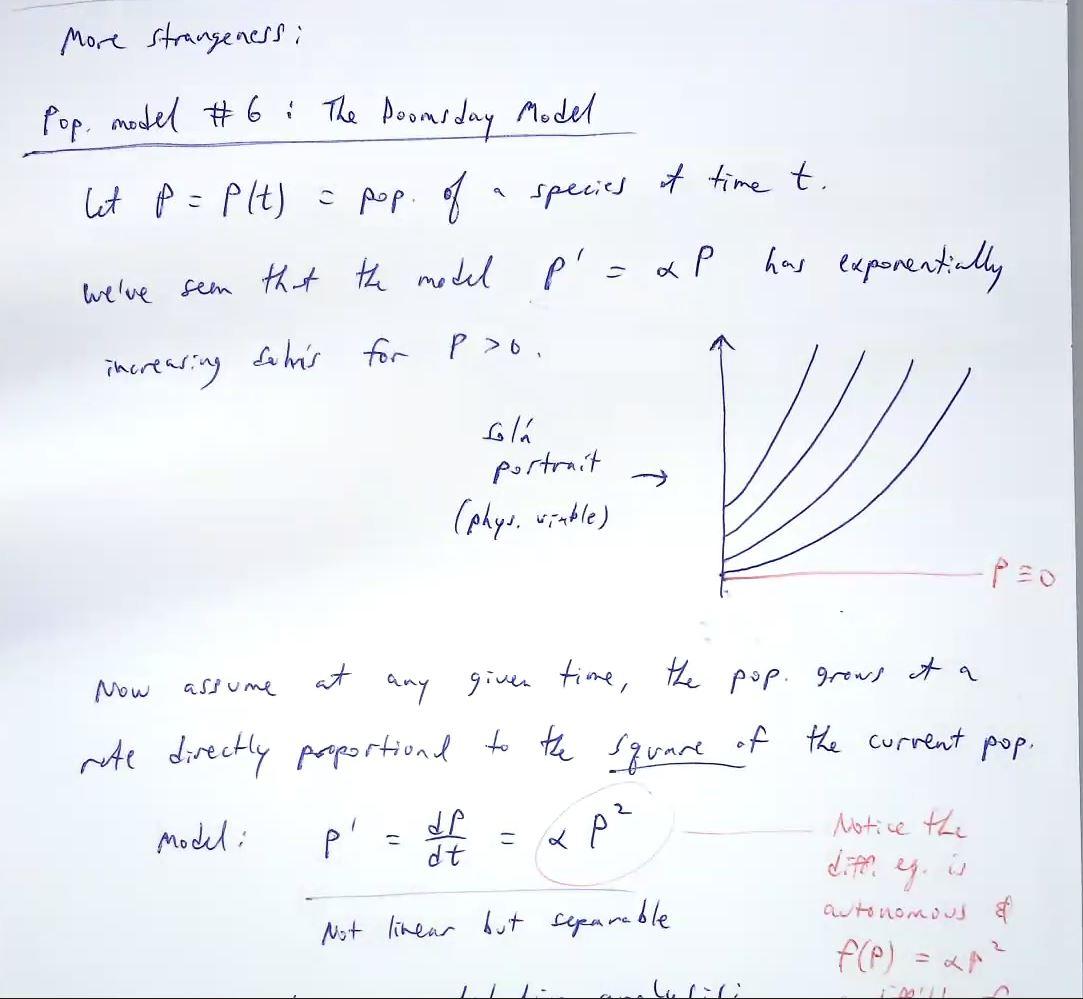 More strangeness:
Pop. model #6: The Doomsday Model
Let P = P(t) = pop. of a species at time t.
We've seen that the model P' = αP has exponentially
increasing soln's for P > 0.
sol'n
portrait →
(phys. viable)
P ≡ 0
Now assume at any given time, the pop. grows at a
rate directly proportional to the square of the current pop.
Model: P' = dP/dt = αP²
Not linear but separable
Notice the
diff. eq. is
autonomous &
f(P) = αP²